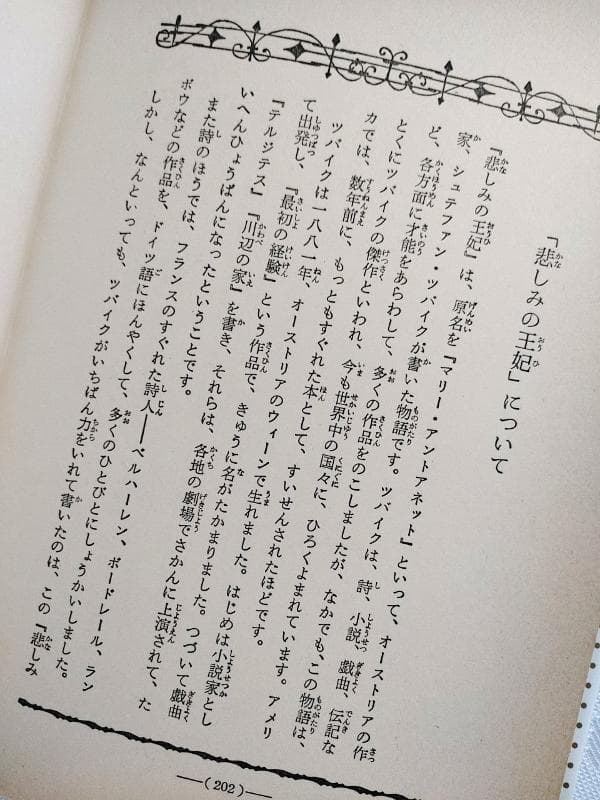 「悲しみの王妃」について
『悲しみの王妃』は、原名を『マリー・アントアネット』といって、オーストリアの作
家、シュテファン・ツバイクが書いた物語です。ツバイクは、詩、小説、戯曲、伝記な
ど、各方面に才能をあらわして、多くの作品をのこしましたが、なかでも、この物語は、
とくにツバイクの傑作といわれ、今も世界中の国々に、ひろくよまれています。アメリ
カでは、数年前に、もっともすぐれた本として、すいせんされたほどです。
ツバイクは一八八一年、オーストリアのウィーンで生れました。はじめは小説家とし
て出発し、『最初の経験』という作品で、きゅうに名がたかまりました。つづいて戯曲
『テルジテス』『川辺の家』を書き、それらは、各地の劇場でさかんに上演されて、た
いへんひょうばんになったということです。
また詩のほうでは、フランスのすぐれた詩人――ベルハーレン、ボードレール、ラン
ボウなどの作品を、ドイツ語にほんやくして、多くのひとびとにしょうかいしました。
しかし、なんといっても、ツバイクがいちばん力をいれて書いたのは、この『悲しみ
(202)